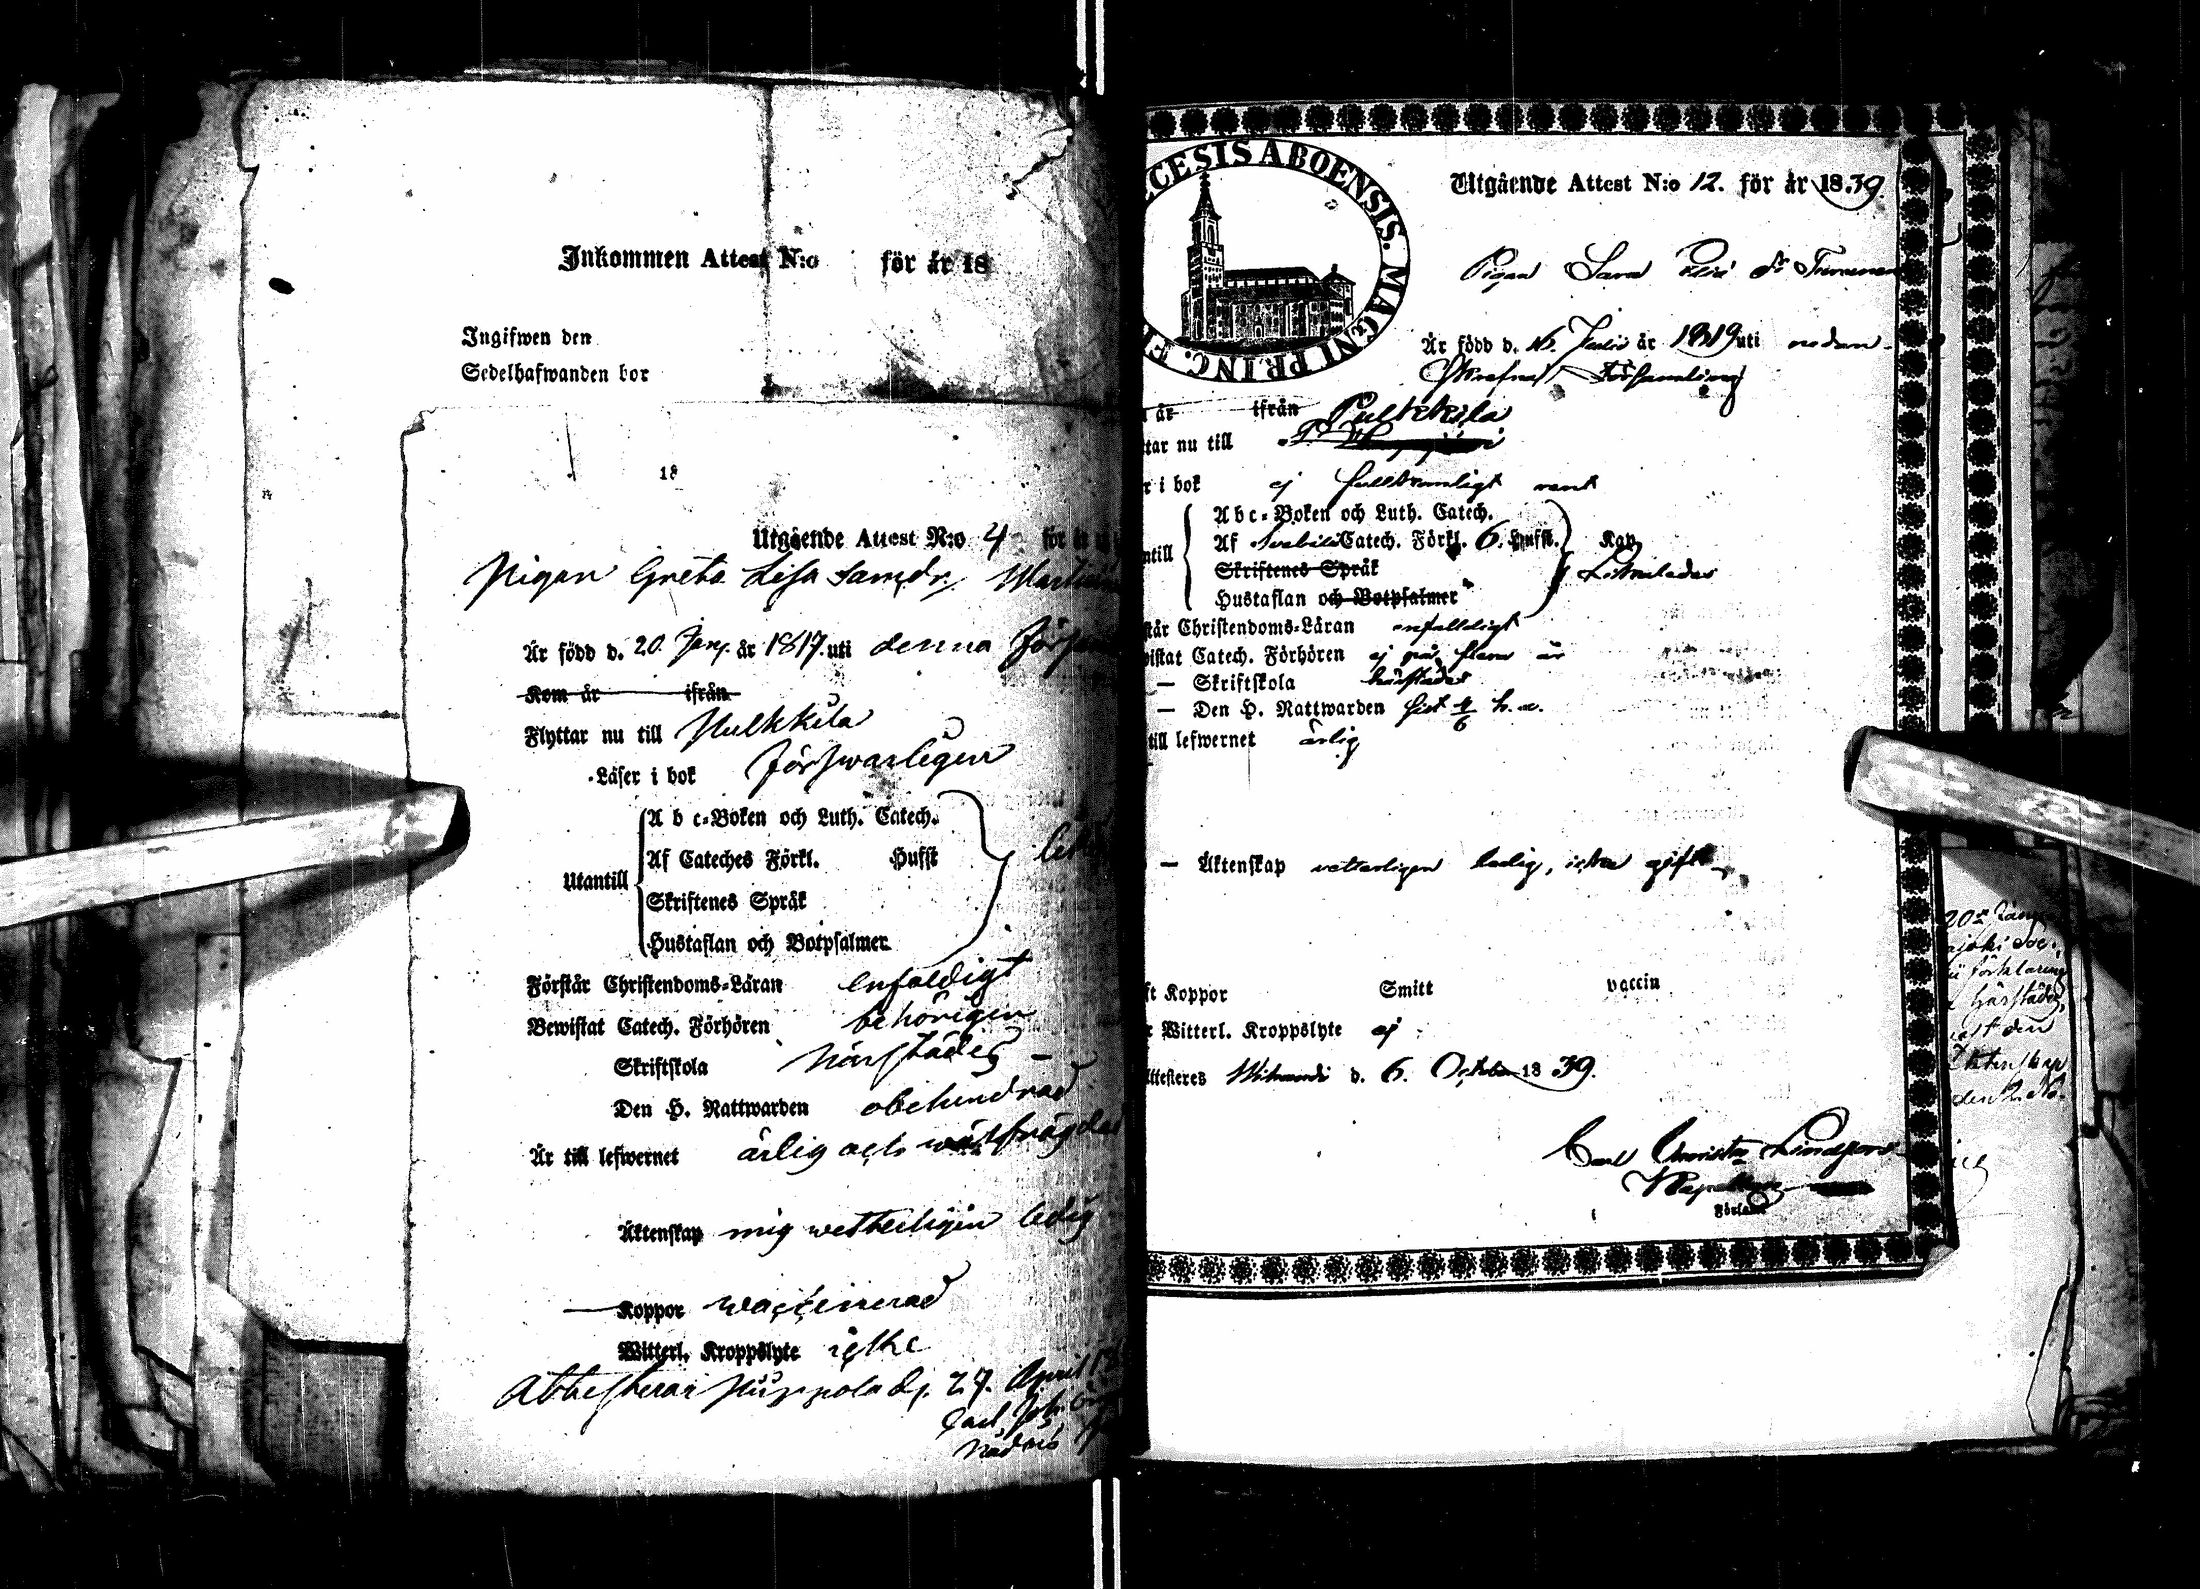 Inkommen Attest N:o för år 18
Ingifwen den
Sedelhafwanden bor
18
Utgående Attest N:o 4 för år
Pigan Greta Lisa Samsdr.
Är född d. 20 Jan. år 1817 uti denna
Kom år ifrån
Flyttar nu till Pulkkila
Läser i bok försvarligen
Utantill
A b c-Boken och Luth. Catech.
Af Cateches Förkl. Hufst
Skriftenes Språk
Hustaflan och Botpsalmer
Förstår Christendoms-Läran enfaldigt
Bewistat Catech. Förhören behörigen
Skriftskola härstädes
Den H. Nattwarden obehindrad
Är till lefwernet ärlig och
Äktenskap mig vetterligen ledig
Koppor vaccinerad
Witterl. Kroppslyte icke
27. April
Carl Joh.
ECESIS ABOENSIS. MAGNI PRINC. F
Utgående Attest N:o 12. för år 1839.
Pigan Sara
Är född d. 16. Julii år 1819 uti nedan-
skrefne Församling
år ifrån
tar nu till Pulkkila
r i bok ej fullkomligt rent
ntill
A b c-Boken och Luth. Catech.
Af Svebilii Catech. Förkl. 6. Hufst.
Skriftenes Språk
Hustaflan och Botpsalmer
står Christendoms-Läran enfaldigt
wistat Catech. Förhören ej på flera år
— Skriftskola härstädes
— Den H. Nattwarden sist 4/6 h. a.
till lefwernet ärlig
— Äktenskap vetterligen ledig, icke gift
ft Koppor Smitt vaccin
r Witterl. Kroppslyte ej
ttesteres d. 6. October 1839.
Carl Lindfors
Kapellan
Förläst
förklaring
härstädes,
den
Äktenskap